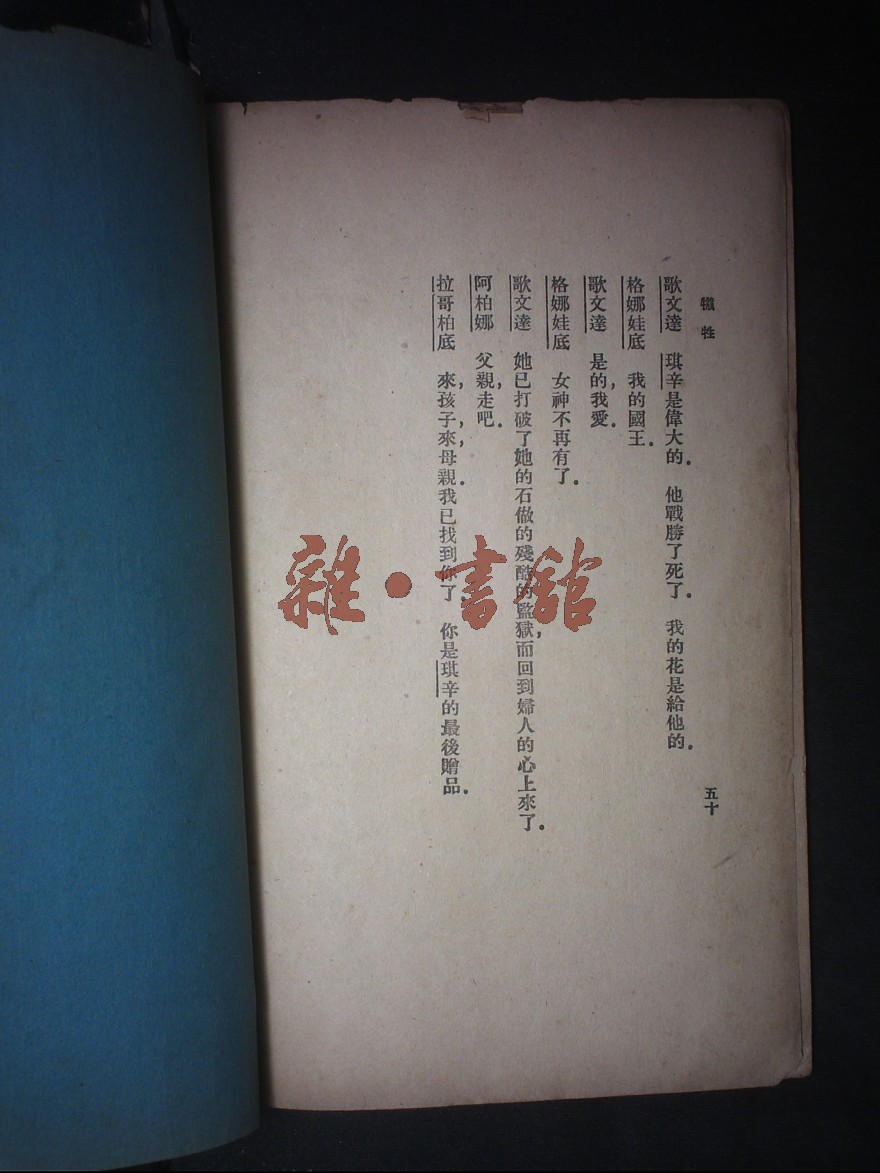 犧牲
五十
歌文達　琪辛是偉大的．　他戰勝了死了．　我的花是給他的．
格娜娃底　我的國王．
歌文達　是的，我愛．
格娜娃底　女神不再有了．
歌文達　她已打破了她的石做的殘酷的監獄，而回到婦人的心上來了．
阿柏娜　父親，走吧．
拉哥柏底　來，孩子，來，母親．我已找到你了．　你是琪辛的最後贈品．
雜·書館